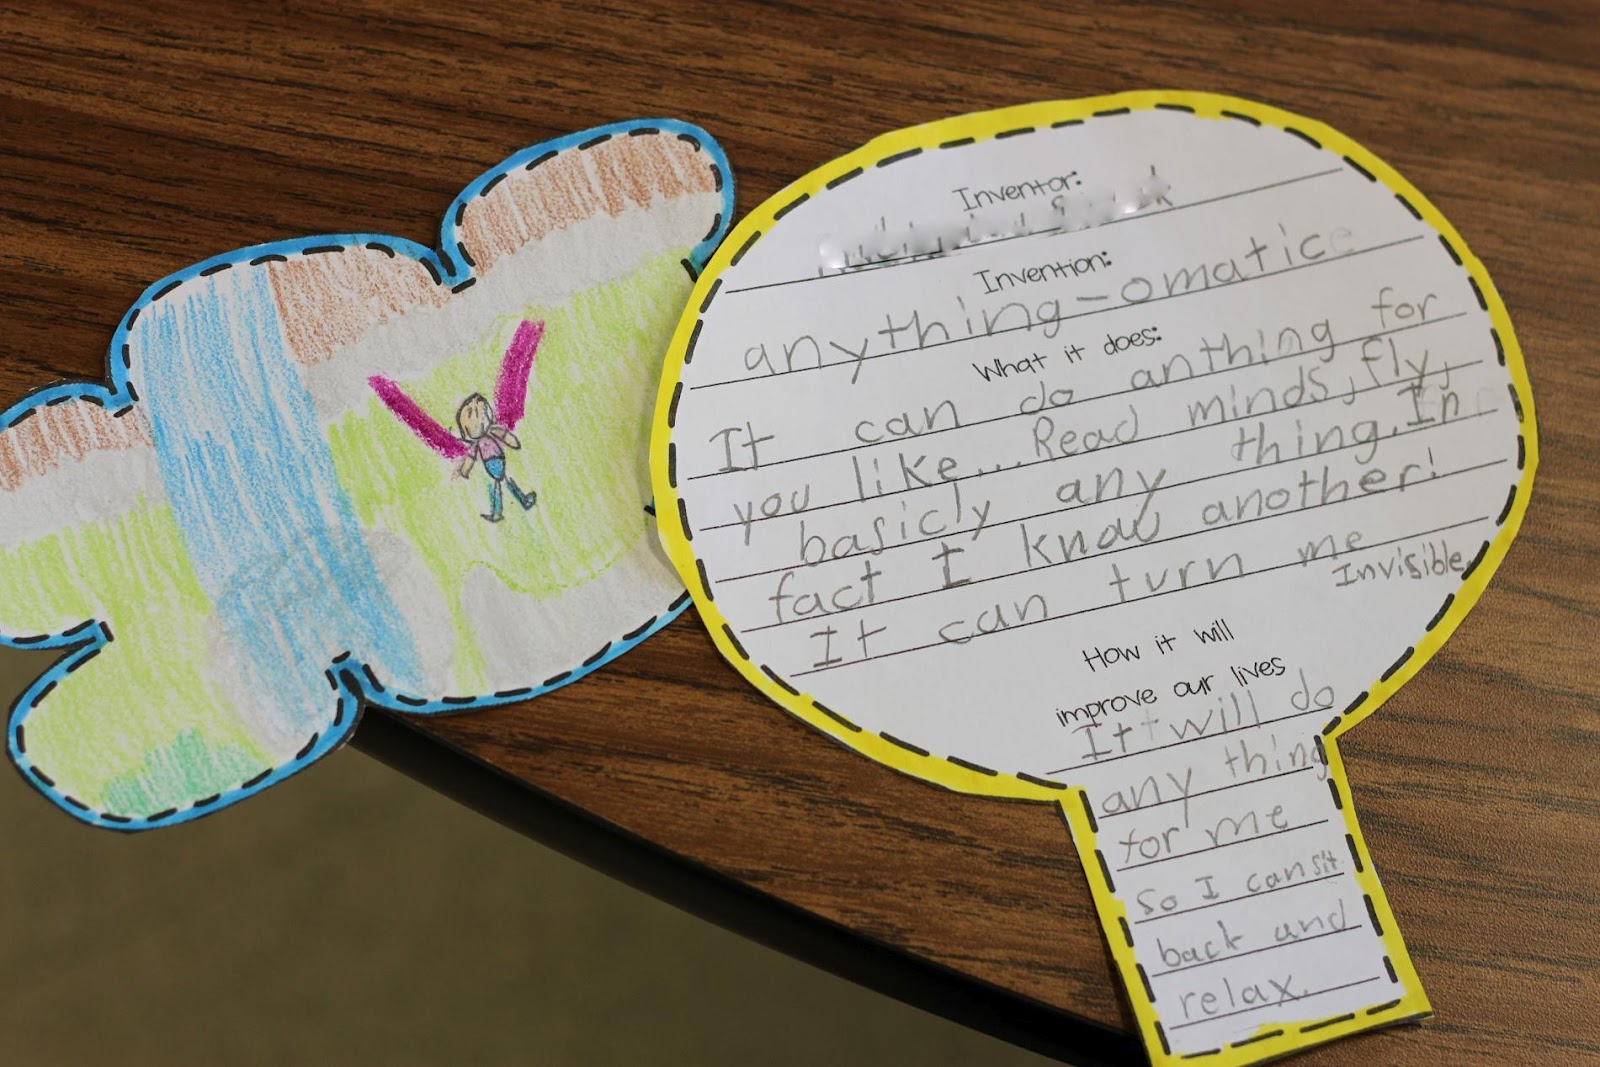 Inventor:
Invention:
anything-omatic
What it does:
It can do anthing for
you like... Read minds, fly,
basicly any thing. In
fact I know another!
It can turn me
Invisible.
How it will
improve our lives
It will do
any thing
for me
so I can sit
back and
relax.